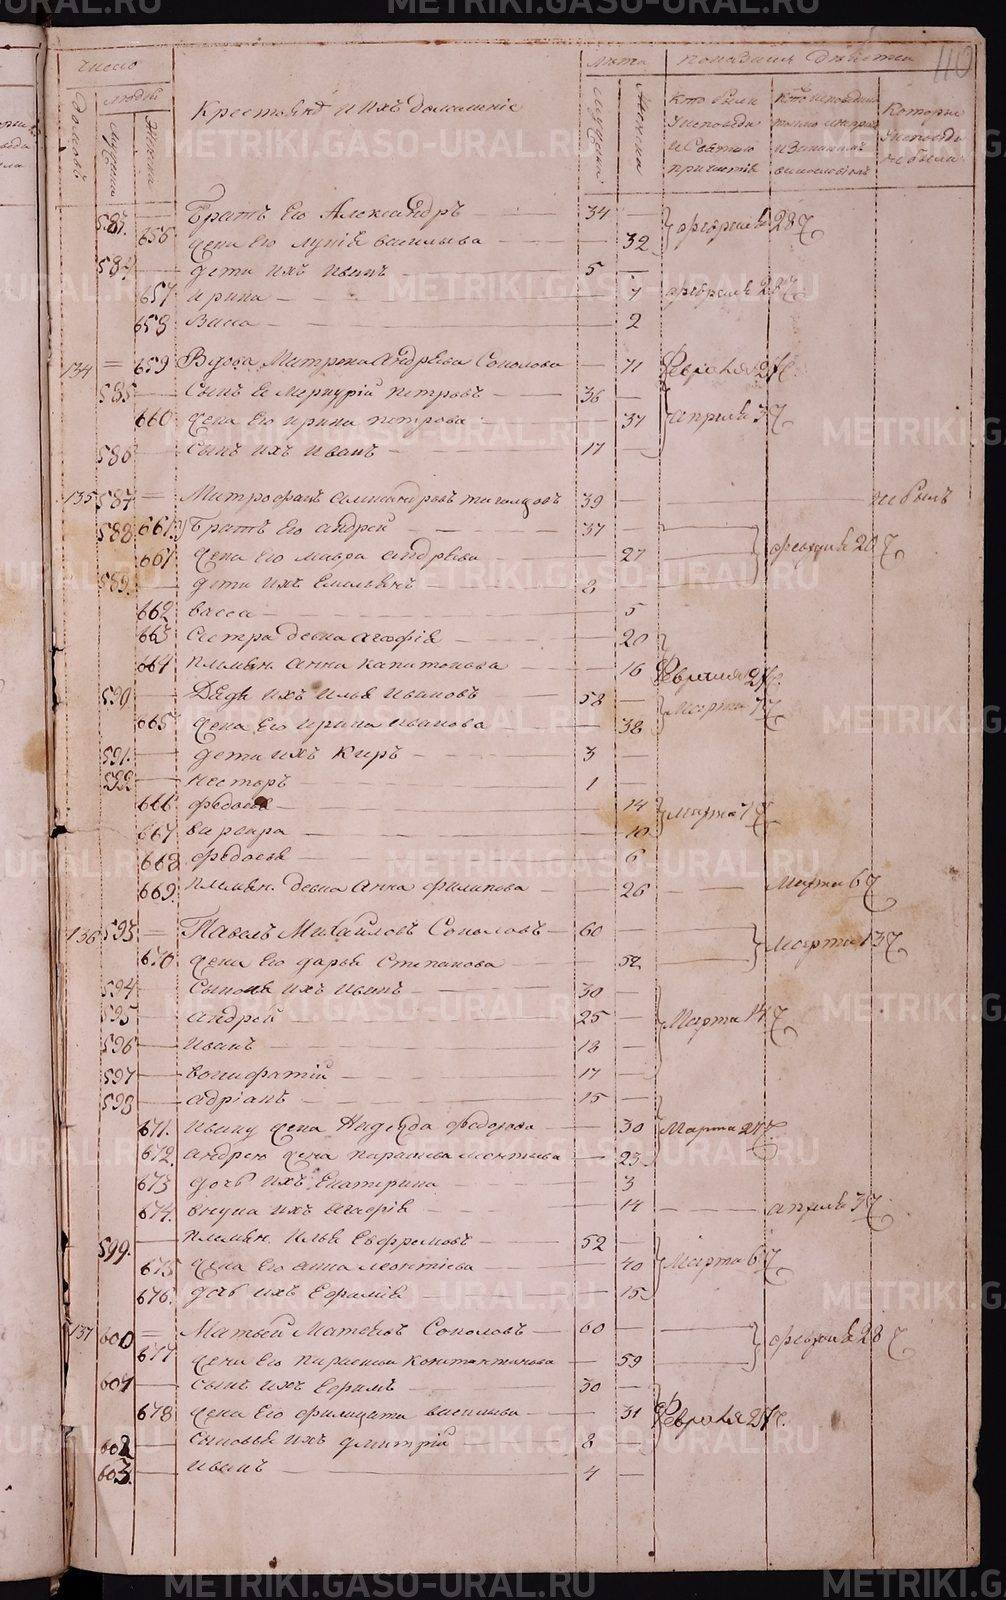 110
Число
Лѣта
Показаніе дѣйства
Домовъ
Людей
Мужеска
Женска
Крестьяне и ихъ домашніе
Мужска
Женска
Кто были
у исповеди
и Святаго
причастія
Которые
у исповеди
не были
583. — Братъ Его Александръ — 34 —
656 жена Его Лукія васильева — 32 } февраля 28 ч
584 — дети ихъ Иванъ — 5 —
657 ирина — 7 февраля 28 ч
658 Васса — 2
134 = 659 Вдова Матрона Андреева Соколова — 71 Февраля 27 ч.
585 — Сынъ Ее Меркурій петровъ — 36 —
660 жена Его Ирина петрова — 37 } Апреля 3 ч
586 — Сынъ ихъ Иванъ — 17 —
135 587 = Митрофанъ — 39 — не былъ
588 661 Братъ Его андрей — 37 —
661 жена Его мавра андреева — 27 } февраля 28 ч
589 — дети ихъ Емельянъ — 8 —
662 васса — 5
663 Сестра девка агафія — 20
664 племян. Анна капитонова — 16 Февраля 27 ч.
590 — Дядя ихъ Илья Ивановъ — 58 —
665 жена Его ирина иванова — 38 } Марта 7 ч
591. — дети ихъ Киръ — 3
592 — несторъ — 1
666 федосья — 14
667 варвара — 10 } Марта 7 ч
668 федосья — 6
669 племян. девка Анна филипова — 26 — Марта 6 ч
136 593 = Павелъ Михайловъ Соколовъ — 60 —
670 жена Его дарья Степанова — 52 } Марта 13 ч
594 — Сыновья ихъ Иванъ — 30 —
595 — андрей — 25 —
596 — Иванъ — 18 — } Марта 14 ч
597 — вонифатій — 17 —
598 — адріанъ — 15 —
671. Ивану жена Надежда федорова — 30 Марта 27 ч
672. андрею жена параскева леонтьева — 23
673 дочь ихъ Екатерина — 3
674. внука ихъ Агафія — 14 — апреля 3 ч
599. — племян. Илья Евфремовъ — 52 —
675 жена Его анна леонтіева — 40 } Марта 6 ч
676. дочь ихъ Ефралія — 15
137 600 = Матвей Матвеевъ Соколовъ — 60 —
677 жена Его параскева Константинова — 59 } февраля 28 ч
601 — сынъ ихъ Ефимъ — 30 —
678 жена Его филицата васильева — 31 } Февраля 27 ч.
602 — Сыновья ихъ дмитрій — 8 —
603. — иванъ — 4 —
METRIKI.GASO-URAL.RU